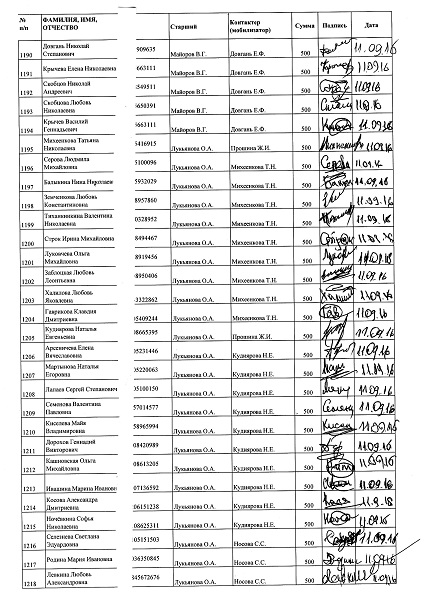 № п/п ФАМИЛИЯ, ИМЯ, ОТЧЕСТВО Старший Контактер (мобилизатор) Сумма Подпись Дата
1190 Довгань Николай Степанович 909635 Майоров В.Г. Довгань Е.Ф. 500 11.09.16
1191 Крычева Елена Николаевна 663111 Майоров В.Г. Довгань Е.Ф. 500 11.09.16
1192 Скобцов Николай Андреевич Майоров В.Г. Довгань Е.Ф. 500 11.09.16
1193 Скобцова Любовь Николаевна 6650391 Майоров В.Г. Довгань Е.Ф. 500 11.09.16
1194 Крычев Василий Геннадьевич 6663111 Майоров В.Г. Довгань Е.Ф. 500 11.09.16
1195 Михеенкова Татьяна Николаевна 5416915 Лукьянова О.А. Прошина Ж.И. 500 11.09.16
1196 Серова Людмила Михайловна 5100096 Лукьянова О.А. Михеенкова Т.Н. 500 Серова 11.09.16
1197 Балыкина Нина Николаевн 5932029 Лукьянова О.А. Михеенкова Т.Н. 500 11.09.16
1198 Земченкова Любовь Константиновна 8957860 Лукьянова О.А. Михеенкова Т.Н. 500 11.09.16
1199 Валентина Николаевна 0328952 Лукьянова О.А. Михеенкова Т.Н. 500 11.09.16
1200 Строк Ирина Михайловна 8494467 Лукьянова О.А. Михеенкова Т.Н. 500 11.09.16
1201 Луковчева Ольга Михайловна 8919456 Лукьянова О.А. Михеенкова Т.Н. 500 11.09.16
1202 Заблоцкая Любовь Леонтьевна 8950406 Лукьянова О.А. Михеенкова Т.Н. 500 11.09.16
1203 Халилова Любовь Яковлевна 3322862 Лукьянова О.А. Михеенкова Т.Н. 500 11.09.16
1204 Гаврикова Клавдия Дмитриевна 5409244 Лукьянова О.А. Михеенкова Т.Н. 500 Гав 11.09.16
1205 Кудярова Наталья Евгеньевна 08665395 Лукьянова О.А. Прошина Ж.И. 500 11.09.16
1206 Арсеничева Елена Вячеславовна 05231446 Лукьянова О.А. Кудярова Н.Е. 500 11.09.16
1207 Мартынова Наталья Егоровна 05220063 Лукьянова О.А. Кудярова Н.Е. 500 11.09.16
1208 Лапаев Сергей Степанович 05100150 Лукьянова О.А. Кудярова Н.Е. 500 11.09.16
1209 Семенова Валентина Павловна 57014577 Лукьянова О.А. Кудярова Н.Е. 500 11.09.16
1210 Киселева Майя Владимировна 58965994 Лукьянова О.А. Кудярова Н.Е. 500 11.09.16
1211 Дорохов Геннадий Викторович 08420989 Лукьянова О.А. Кудярова Н.Е. 500 11.09.16
1212 Ольга Михайловна 08613205 Лукьянова О.А. Кудярова Н.Е. 500 11.09.16
1213 Ивашина Марина Ивановн 07136592 Лукьянова О.А. Кудярова Н.Е. 500 11.09.16
1214 Косова Александра Дмитриевна 06151238 Лукьянова О.А. Кудярова Н.Е. 500 11.9.16
1215 Ноченкина Софья Николаевна 08625311 Лукьянова О.А. Кудярова Н.Е. 500 11.09.16
1216 Селенева Светлана Эдуардовна 05151503 Лукьянова О.А. Носова С.С. 500 11.09.16
1217 Родина Мария Ивановна 036350845 Лукьянова О.А. Носова С.С. 500 11.09.16
1218 Левкина Любовь Александровна 345672676 Лукьянова О.А. Носова С.С. 500 11.09.16